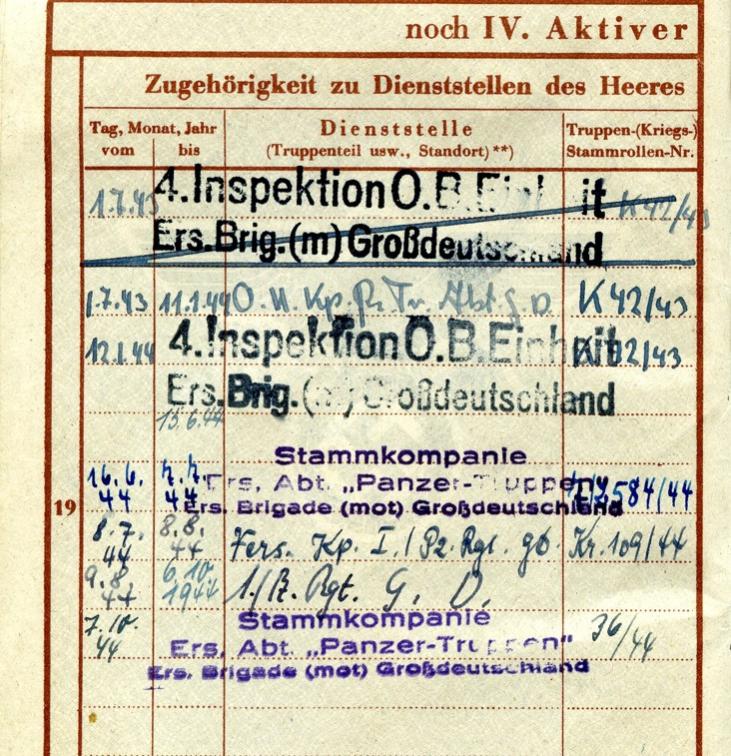 noch IV. Aktiver
Zugehörigkeit zu Dienststellen des Heeres
Tag, Monat, Jahr
vom bis
Dienststelle
(Truppenteil usw., Standort) **)
Truppen-(Kriegs-)
Stammrollen-Nr.
1.7.43 4. Inspektion O.B. Einheit K 42/43
Ers. Brig. (m) Großdeutschland
1.7.43 11.1.44 K 42/43
12.1.44 4. Inspektion O.B. Einheit 42/43
Ers. Brig. (m) Großdeutschland
15.6.44
Stammkompanie
16.6. 44 7.7. 44 Ers. Abt. „Panzer-Truppen" 2584/44
19 Ers. Brigade (mot) Großdeutschland
8.7. 44 8.8. 44 Kp. I./Pz. Rgt. Kr. 109/44
9.8. 44 6.10. 1944 1./Pz. Rgt. G. D.
7.10. 44 Stammkompanie 36/44
Ers. Abt. „Panzer-Truppen"
Ers. Brigade (mot) Großdeutschland